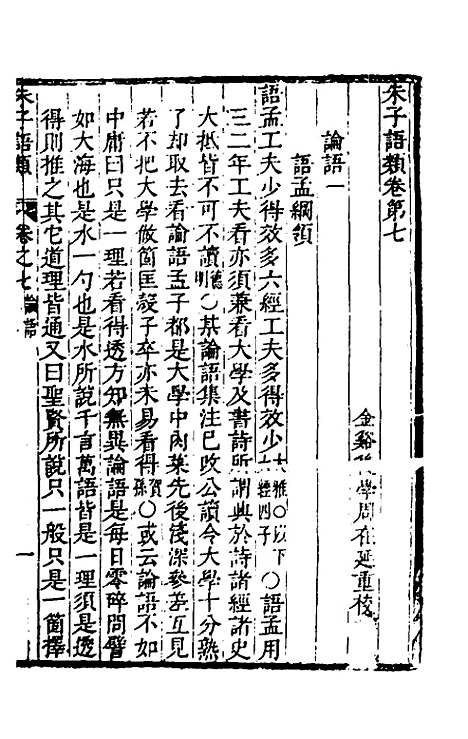 朱子語類卷第七
金谿 學周在延重校
論語一
語孟綱領
語孟工夫少得效多六經工夫多得效少大雅〇以下六經四子〇語孟用
三二年工夫看亦須兼看大學及書詩所謂興於詩諸經諸史
大抵皆不可不讀德明〇某論語集注已改公讀令大學十分熟
了却取去看論語孟子都是大學中肉菜先後淺深參差互見
若不把大學做箇匡殼子卒亦未易看得賀孫〇或云論語不如
中庸曰只是一理若看得透方知無異論語是每日零碎問譬
如大海也是水一勺也是水所說千言萬語皆是一理須是透
得則推之其它道理皆通又曰聖賢所說只一般只是一箇擇
朱子語類 卷之七 論語 一